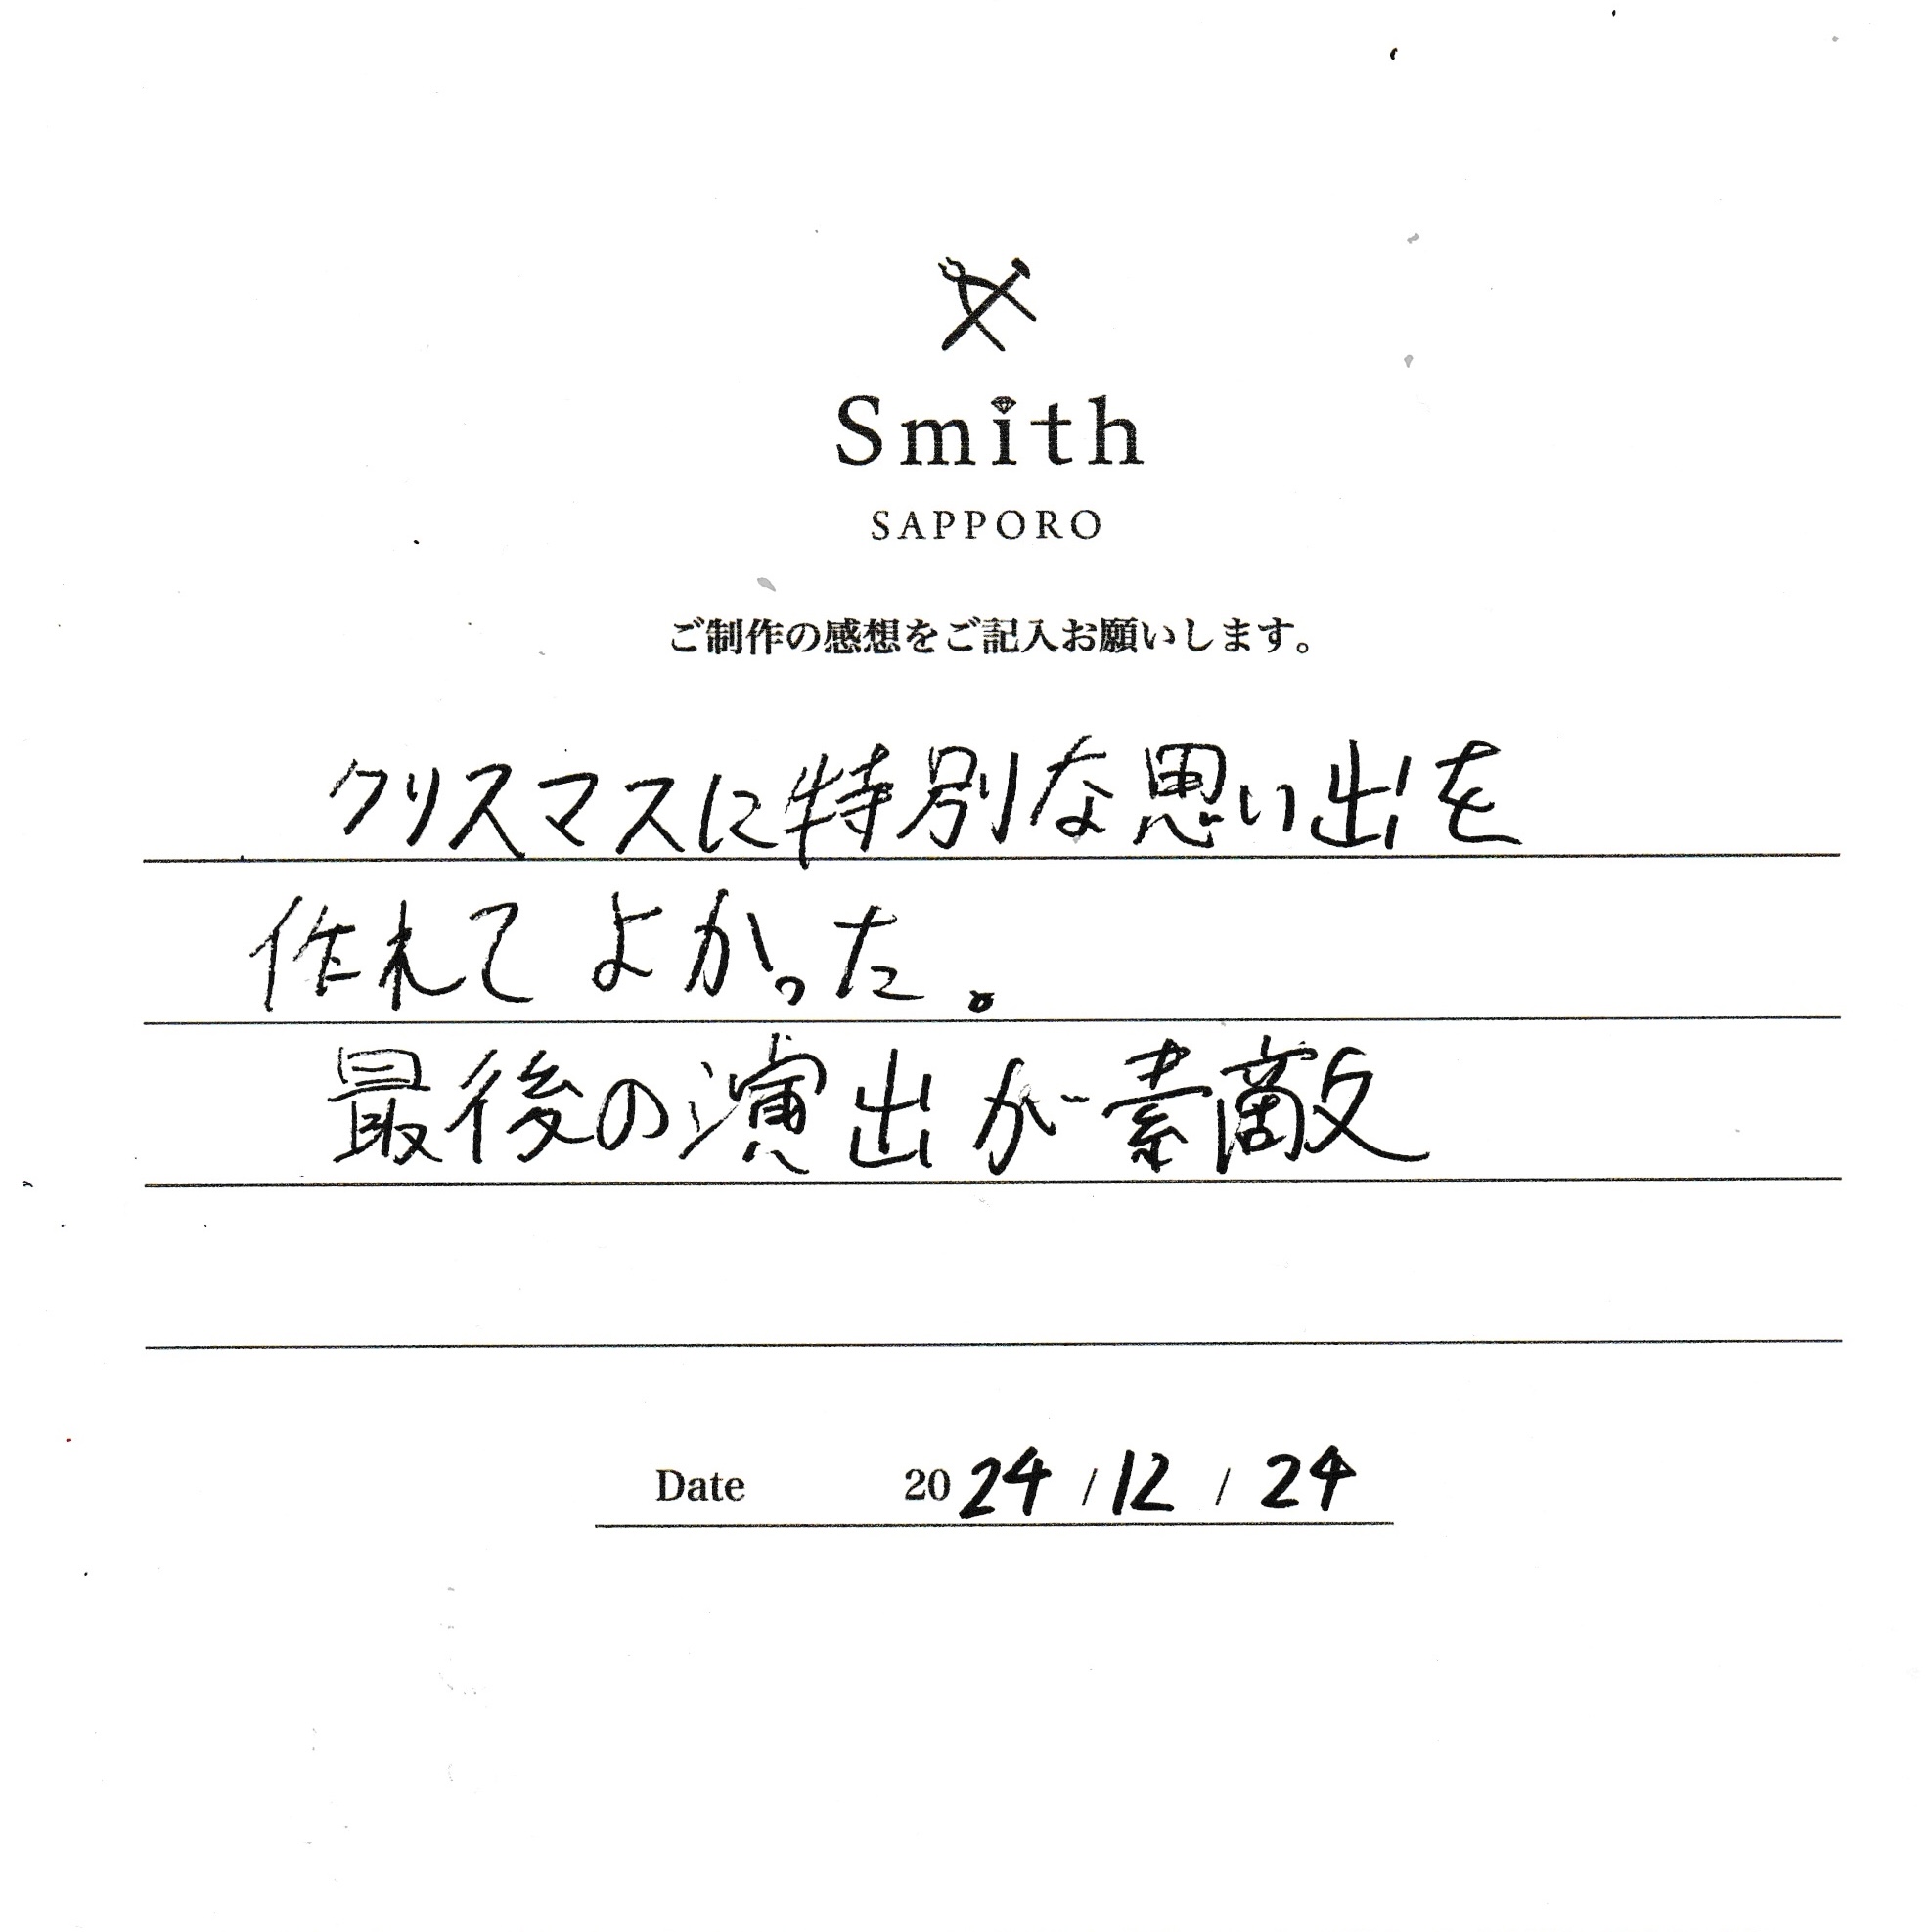 Smith
SAPPORO
ご制作の感想をご記入お願いします。
クリスマスに特別な思い出を
作れてよかった。
最後の演出が素敵
Date 2024/12/24